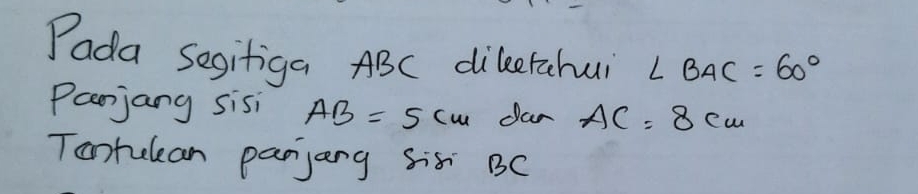 Pada segitiga ABC diketahui ∠ BAC = 60°
Panjang sisi AB = 5 cm dan AC = 8 cm
Tentukan panjang sisi BC